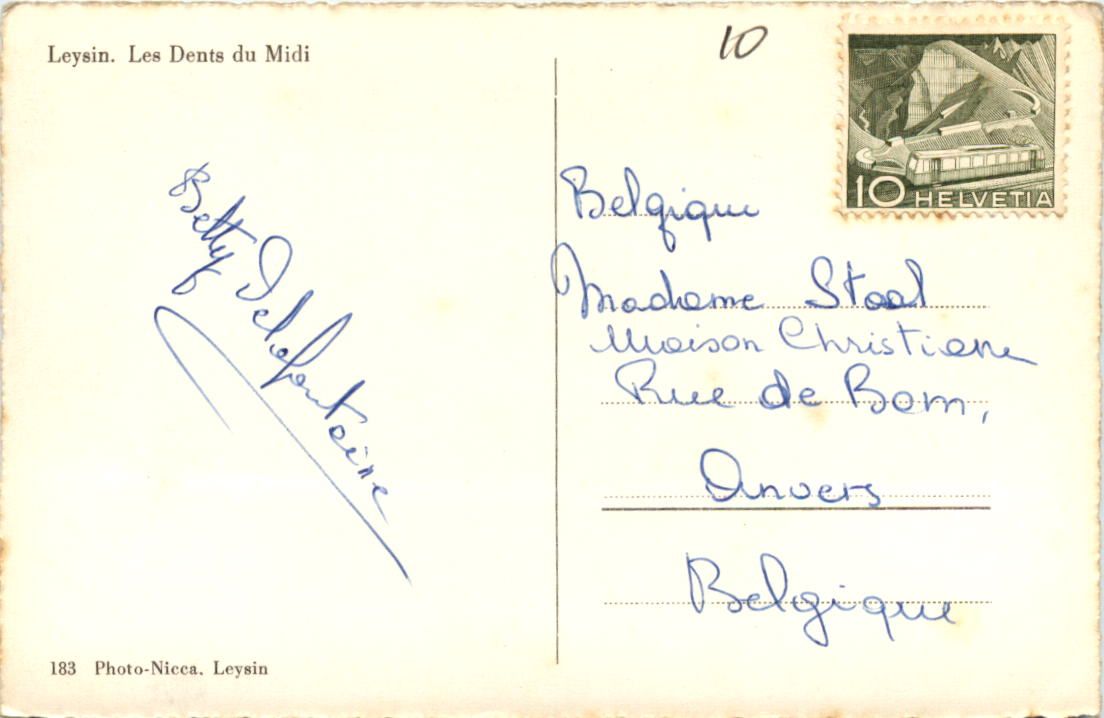 Leysin. Les Dents du Midi
10
10 HELVETIA
Betty Delafontaine
Belgique
Madame Staal
Maison Christiane
Rue de Bom,
Anvers
Belgique
183 Photo-Nicca. Leysin